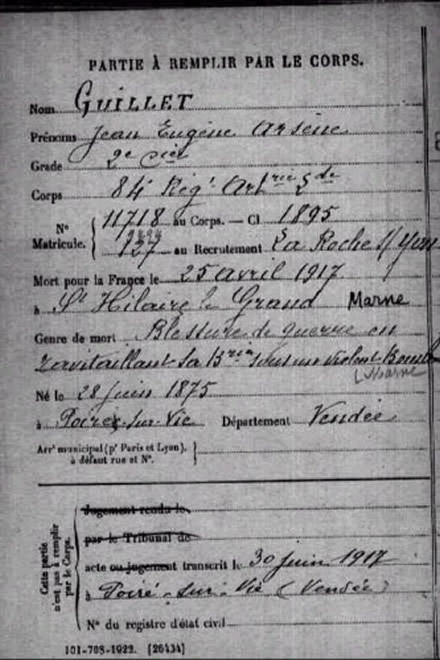 PARTIE À REMPLIR PAR LE CORPS.
Nom GUILLET
Prénoms Jean Eugène Arsène
Grade 2e cier
Corps 84e Régt Artrie Lde
N° Matricule. 11718 au Corps. — Cl 1895
127 au Recrutement La Roche s/ Yon
Mort pour la France le 25 avril 1917
à St Hilaire le Grand Marne
Genre de mort Blessure de guerre en
ravitaillant sa Brie sous un violent Bomb
Marne
Né le 28 juin 1875
à Poiré-sur-Vie Département Vendée
Arrt municipal (pr Paris et Lyon).
à défaut rue et N°.
Cette partie n'est pas à remplir par le Corps.
Jugement rendu le
par le Tribunal de
acte ou jugement transcrit le 30 juin 1917
à Poiré-sur-Vie (Vendée)
N° du registre d'état civil
101-708-1922. [26434]